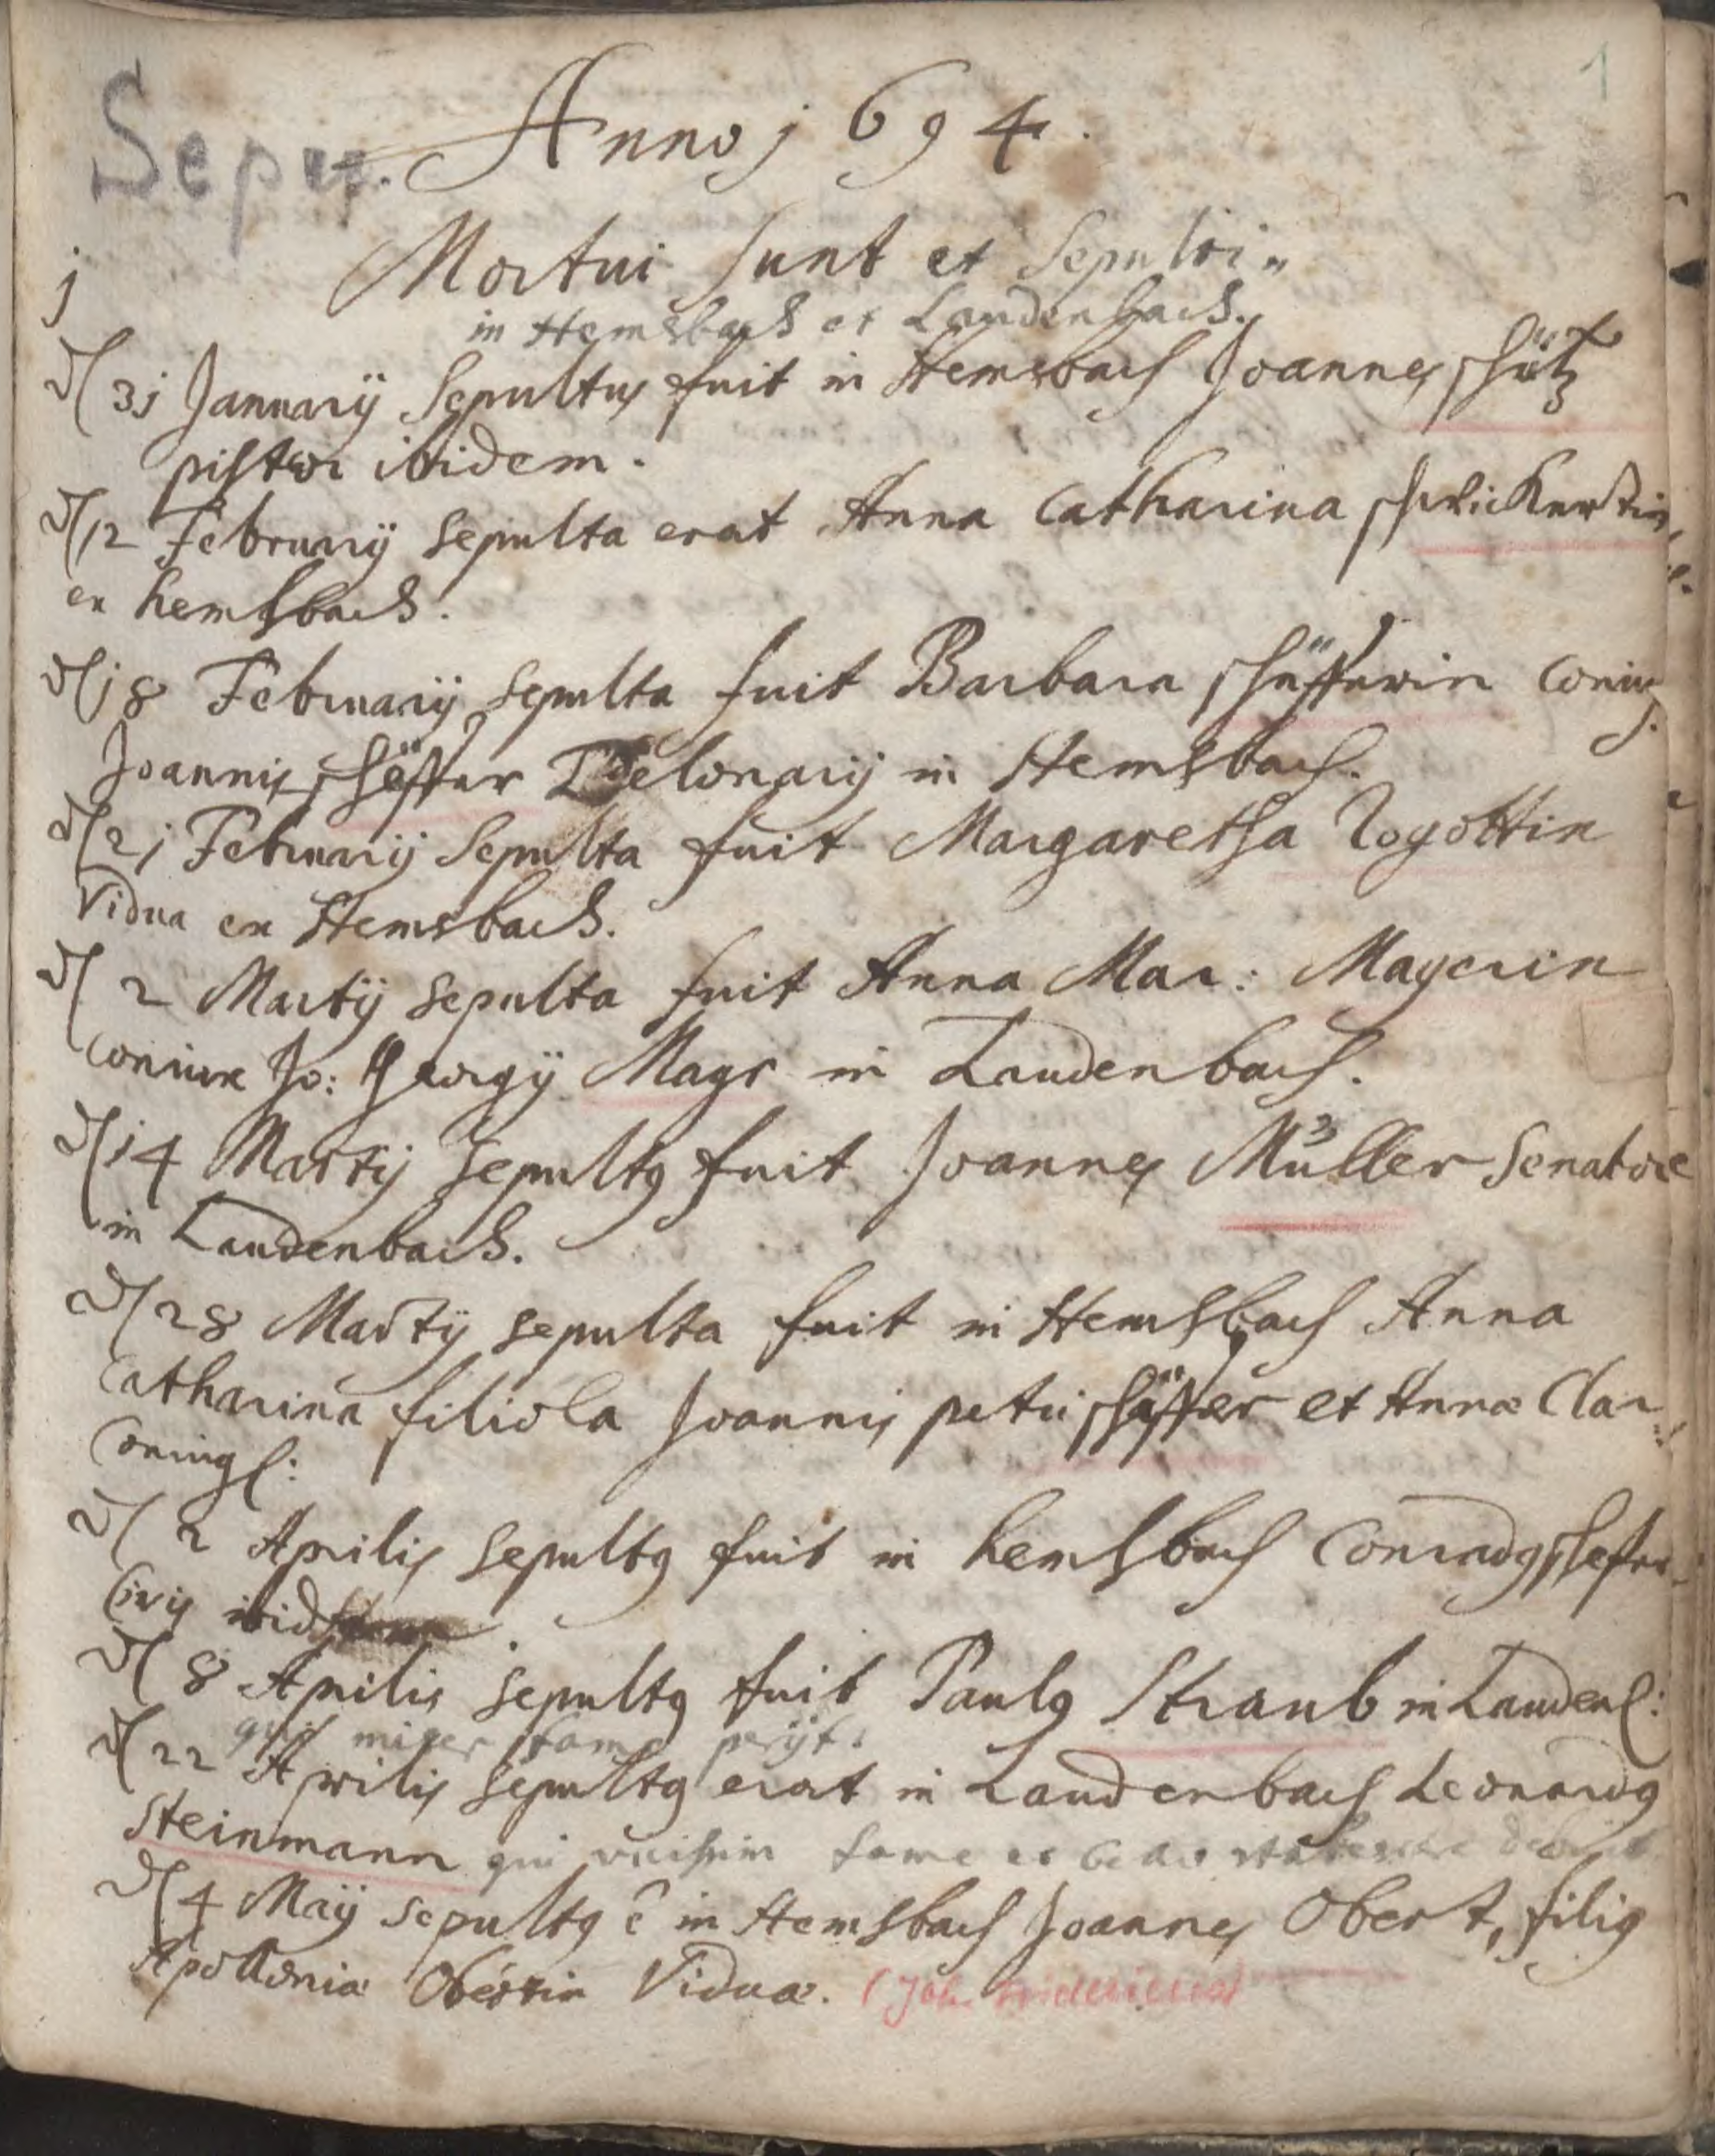 1
Sepul.
Anno j694.
Mortui sunt et Sepulti
in Hemsbach et Laudenbach.
j
d 3j Januarÿ Sepultus fuit in Hemsbach Joannes schütz
pistor ibidem.
d 12 Februarÿ sepulta erat Anna Catharina
ex hemsbach.
d j8 Februarÿ sepulta fuit Barbara schäfferin coniux
Joannis schäffer Telonarÿ in Hemsbach.
d 2j Februarÿ Sepulta fuit Margaretha
Vidua ex Hemsbach.
d 2 Martÿ sepulta fuit Anna Mar: Mayerin
coniux Jo: Georgÿ Mayr in Laudenbach.
d j4 Martÿ sepultq fuit Joannes Müller Senator
in Laudenbach.
d 28 Martÿ sepulta fuit in Hemsbach Anna
Catharina filiola Joannis petri schäffer et Annæ Clar:
Coniug:
d 2 Aprilis sepultq fuit in hemsbach Conradq scheffer
Civis ibidem.
d 8 Aprilis sepultq fuit Paulq Straub in Laudenb:
qui miser fame perÿt.
d 22 Aprilis sepultq erat in Laudenbach Leonardq
Steinmann qui fame et
d 4 Maÿ sepultq ê in Hemsbach Joannes Obert, filiq
Apolloniæ Obertin Viduæ. (Joh. Fridericus)